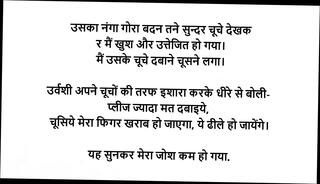 उसका नंगा गोरा बदन तने सुन्दर चूचे देखक
र मैं खुश और उत्तेजित हो गया।
मैं उसके चूचे दबाने चूसने लगा।
उर्वशी अपने चूचों की तरफ इशारा करके धीरे से बोली-
प्लीज ज्यादा मत दबाइये,
चूसिये मेरा फिगर खराब हो जाएगा, ये ढीले हो जायेंगे।
यह सुनकर मेरा जोश कम हो गया.